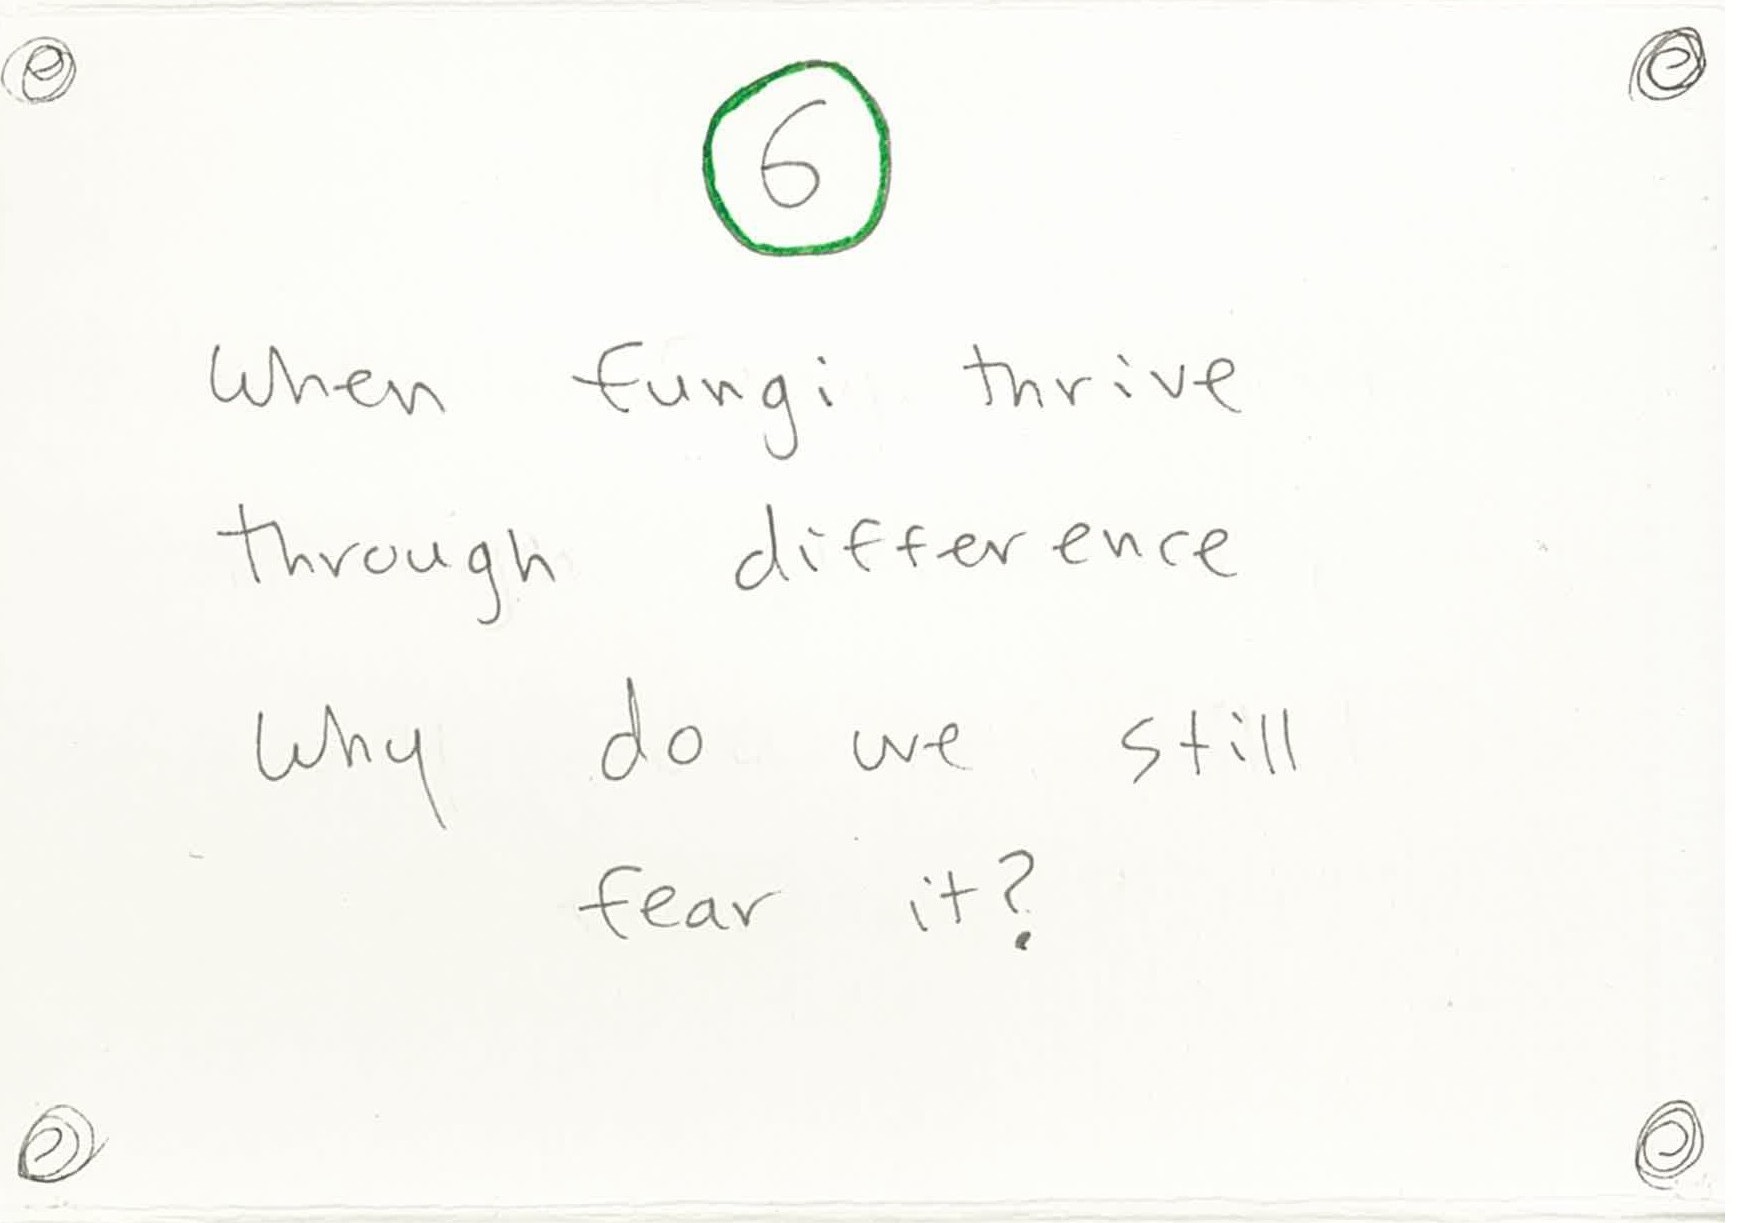 6
When fungi thrive
through difference
Why do we still
fear it?